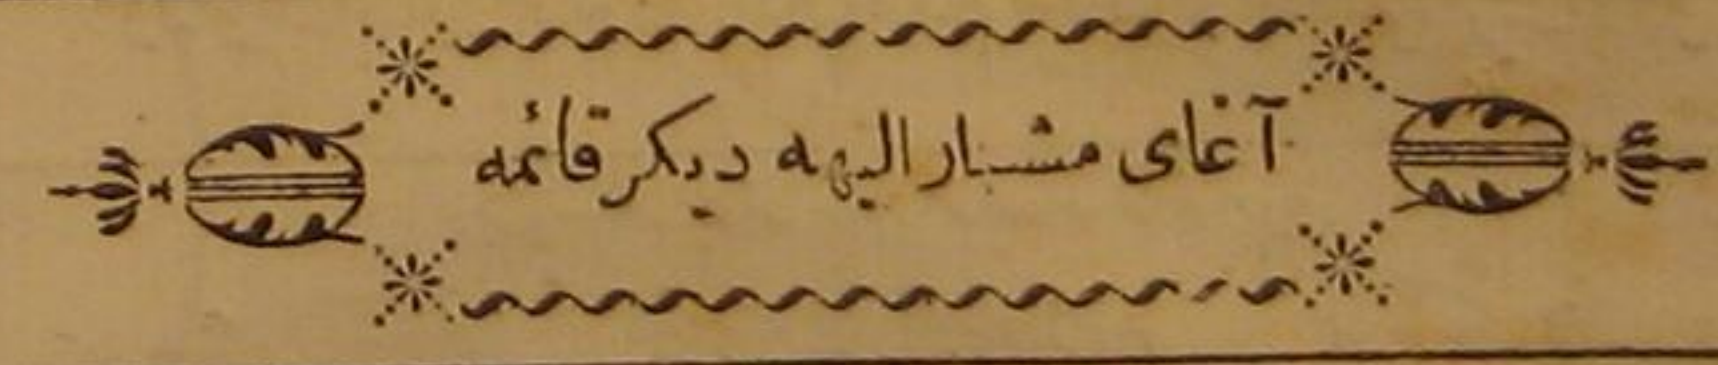 آغای مشار الیهه دیکر قائمه